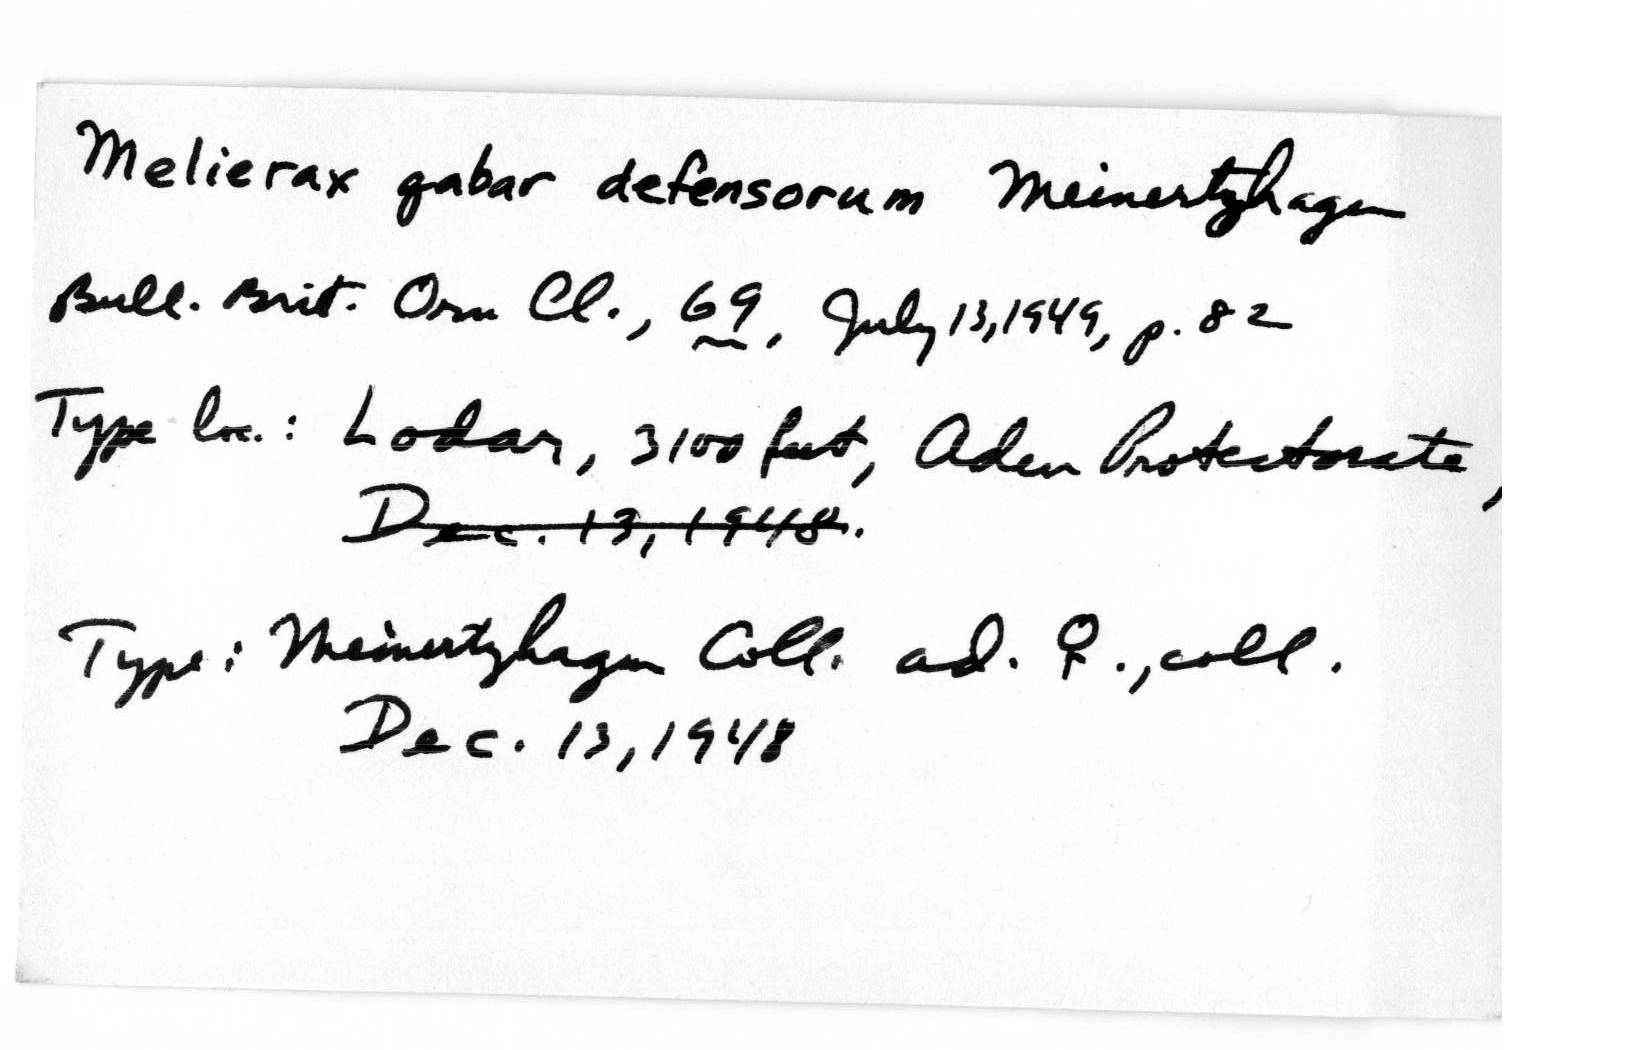 Melierax gabar defensorum Meinertzhagen
Bull. Brit. Orn Cl., 69, July 13, 1949, p. 82
Type loc.: Lodar, 3100 feet, Aden Protectorate,
Dec. 13, 1948.
Type: Meinertzhagen Coll. ad. ♀., coll.
Dec. 13, 1948